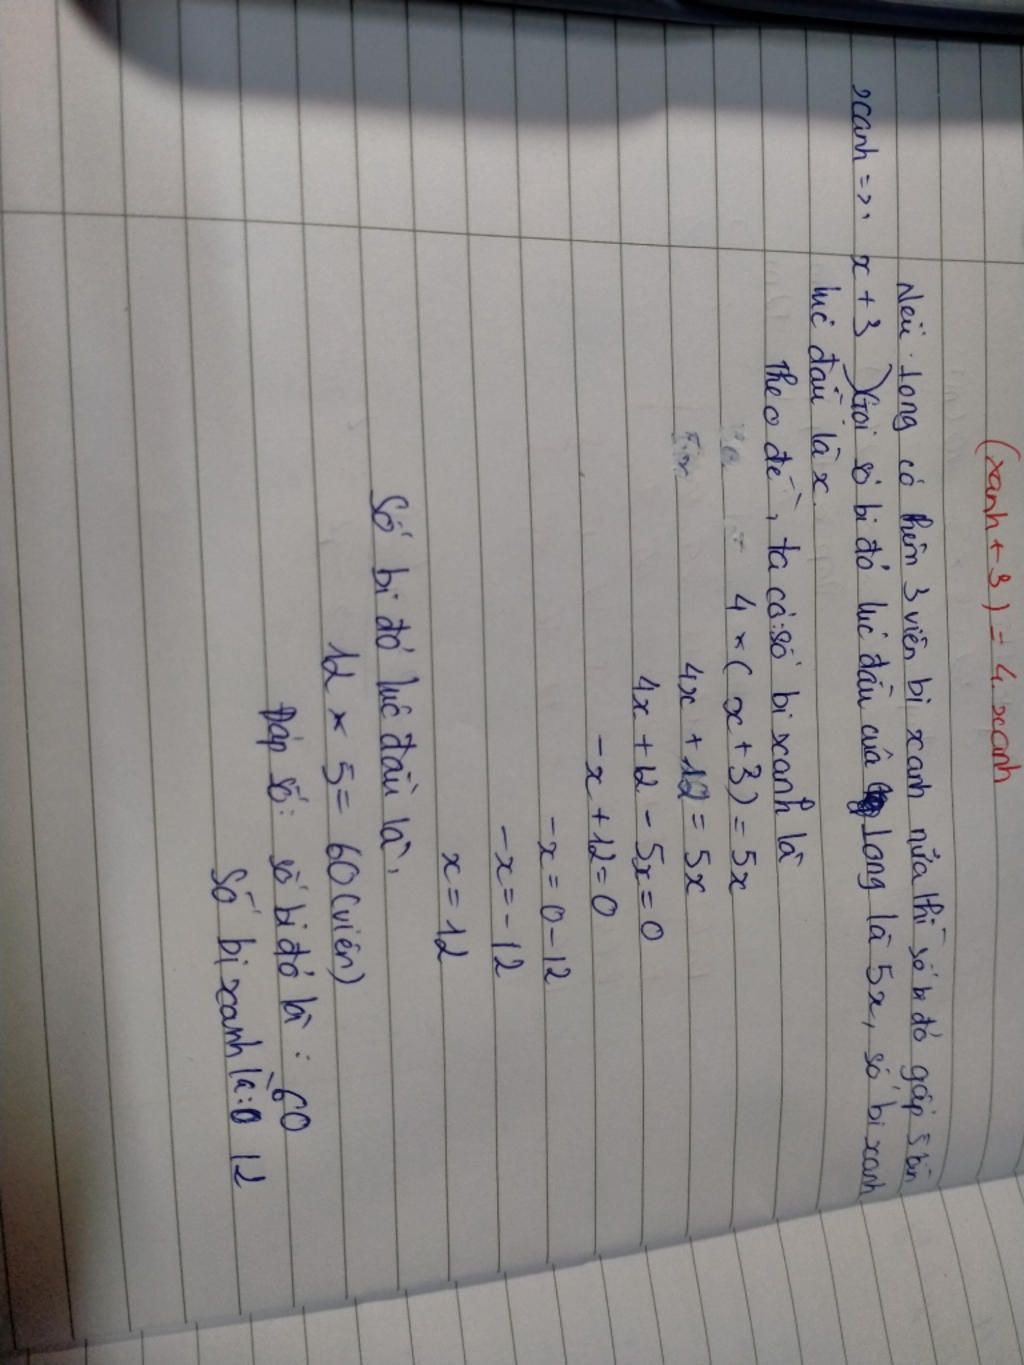 (xanh + 3) = 4. xanh
Nếu Long có thêm 3 viên bi xanh nữa thì số bi đỏ gấp 5 lần
xanh => x + 3 ) Gọi số bi đỏ lúc đầu của Long là 5x, số bi xanh
lúc đầu là x.
Theo đề, ta có: số bi xanh là
4 × ( x + 3) = 5x
4x + 12 = 5x
4x + 12 - 5x = 0
- x + 12 = 0
- x = 0 - 12
- x = - 12
x = 12
Số bi đỏ lúc đầu là,
12 × 5 = 60 (viên)
Đáp số: số bi đỏ là : 60
Số bi xanh là: 12